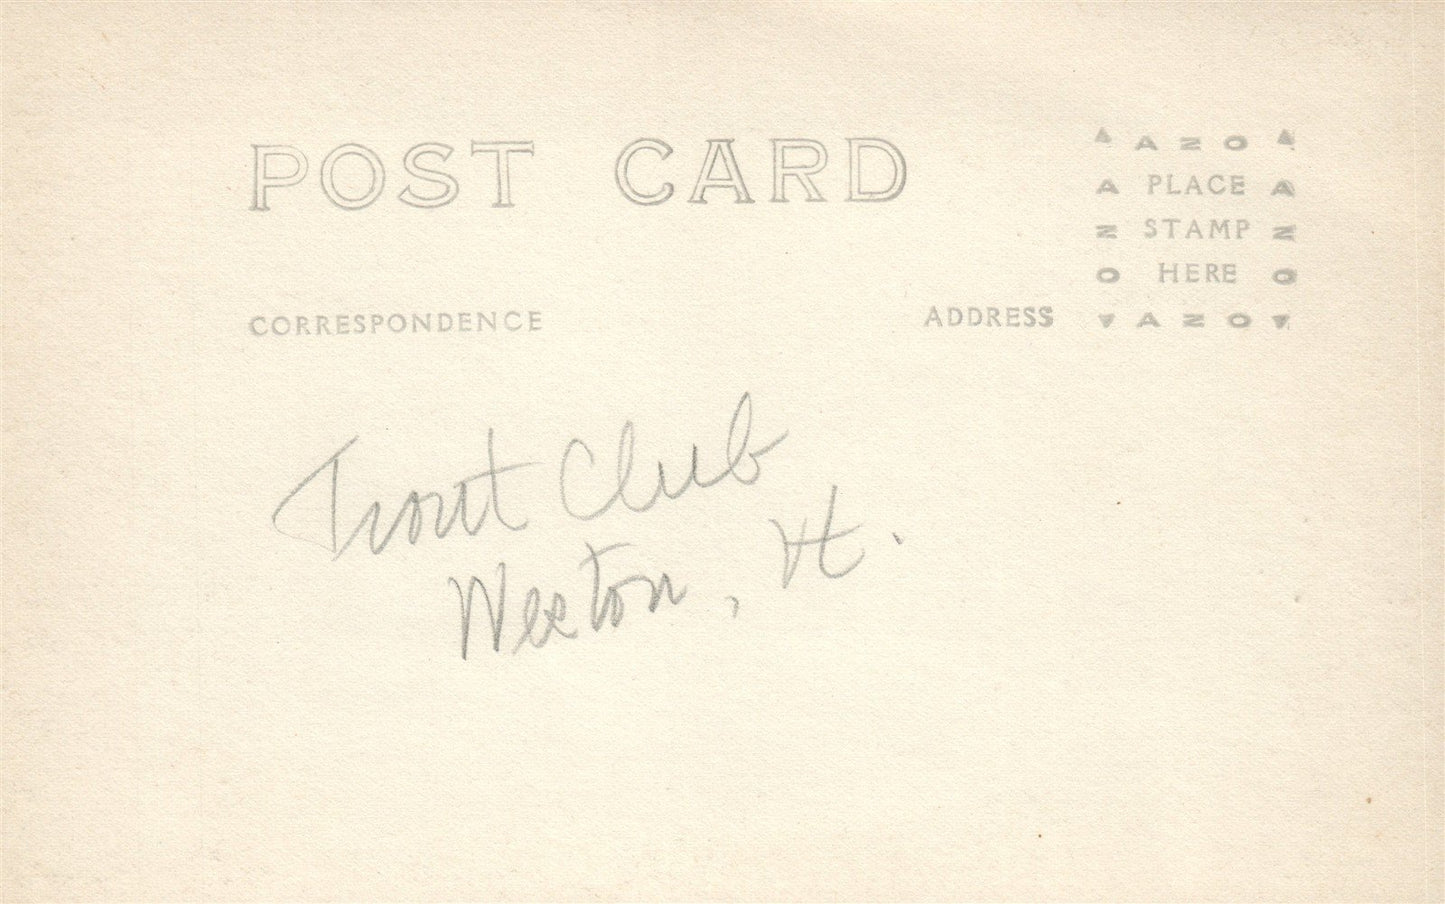 POST CARD
AZO
A PLACE A
Z STAMP Z
O HERE O
AZO
CORRESPONDENCE
ADDRESS
Trout Club
Weston, Vt.